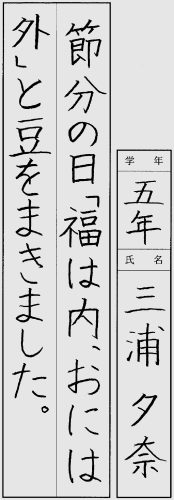 学年
五年
氏名
三浦夕奈
節分の日「福は内、おには
外」と豆をまきました。